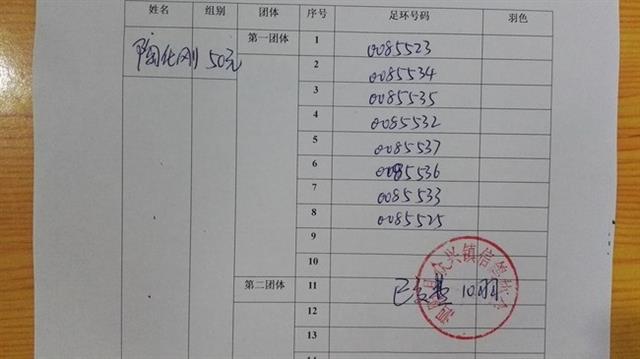 姓名 组别 团体 序号 足环号码 羽色
陶化刚 50元 第一团体 1 0085523
2 0085534
3 0085535
4 0085532
5 0085537
6 0085536
7 0085533
8 0085525
9
10
第二团体 11 10羽
12
13
众兴镇信鸽